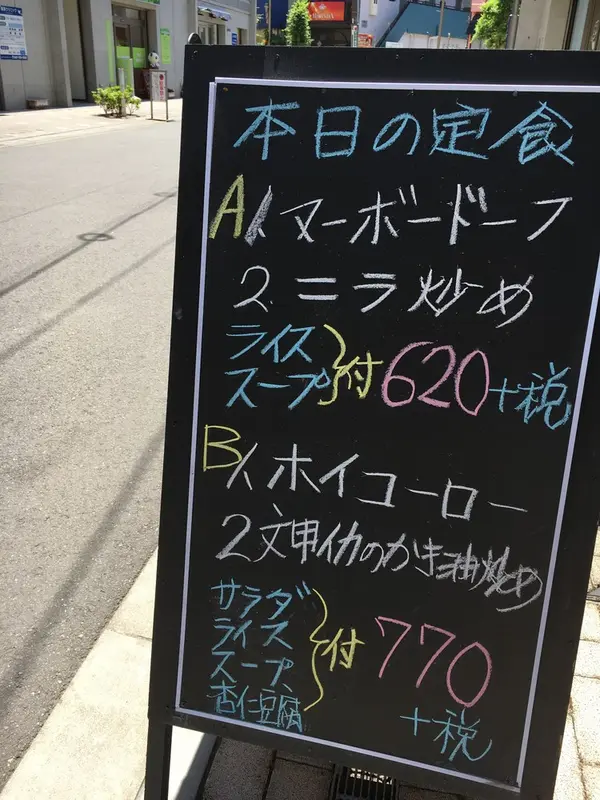 本日の定食
A 1、マーボードーフ
2.ニラ炒め
ライス
スープ
付 620+税
B 1、ホイコーロー
2文甲イカのかき油炒め
サラダ
ライス
スープ
杏仁豆腐
付 770
+税